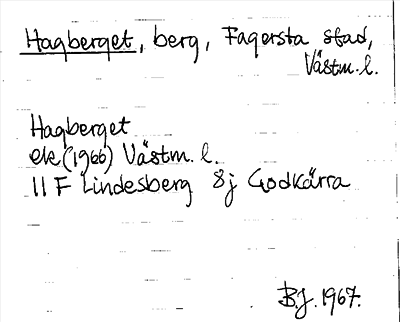 Hagberget, berg, Fagersta stad,
Västm. l.
Hagberget
ek (1966) Västm. l.
11 F Lindesberg 8j Godkärra
B.J. 1967.